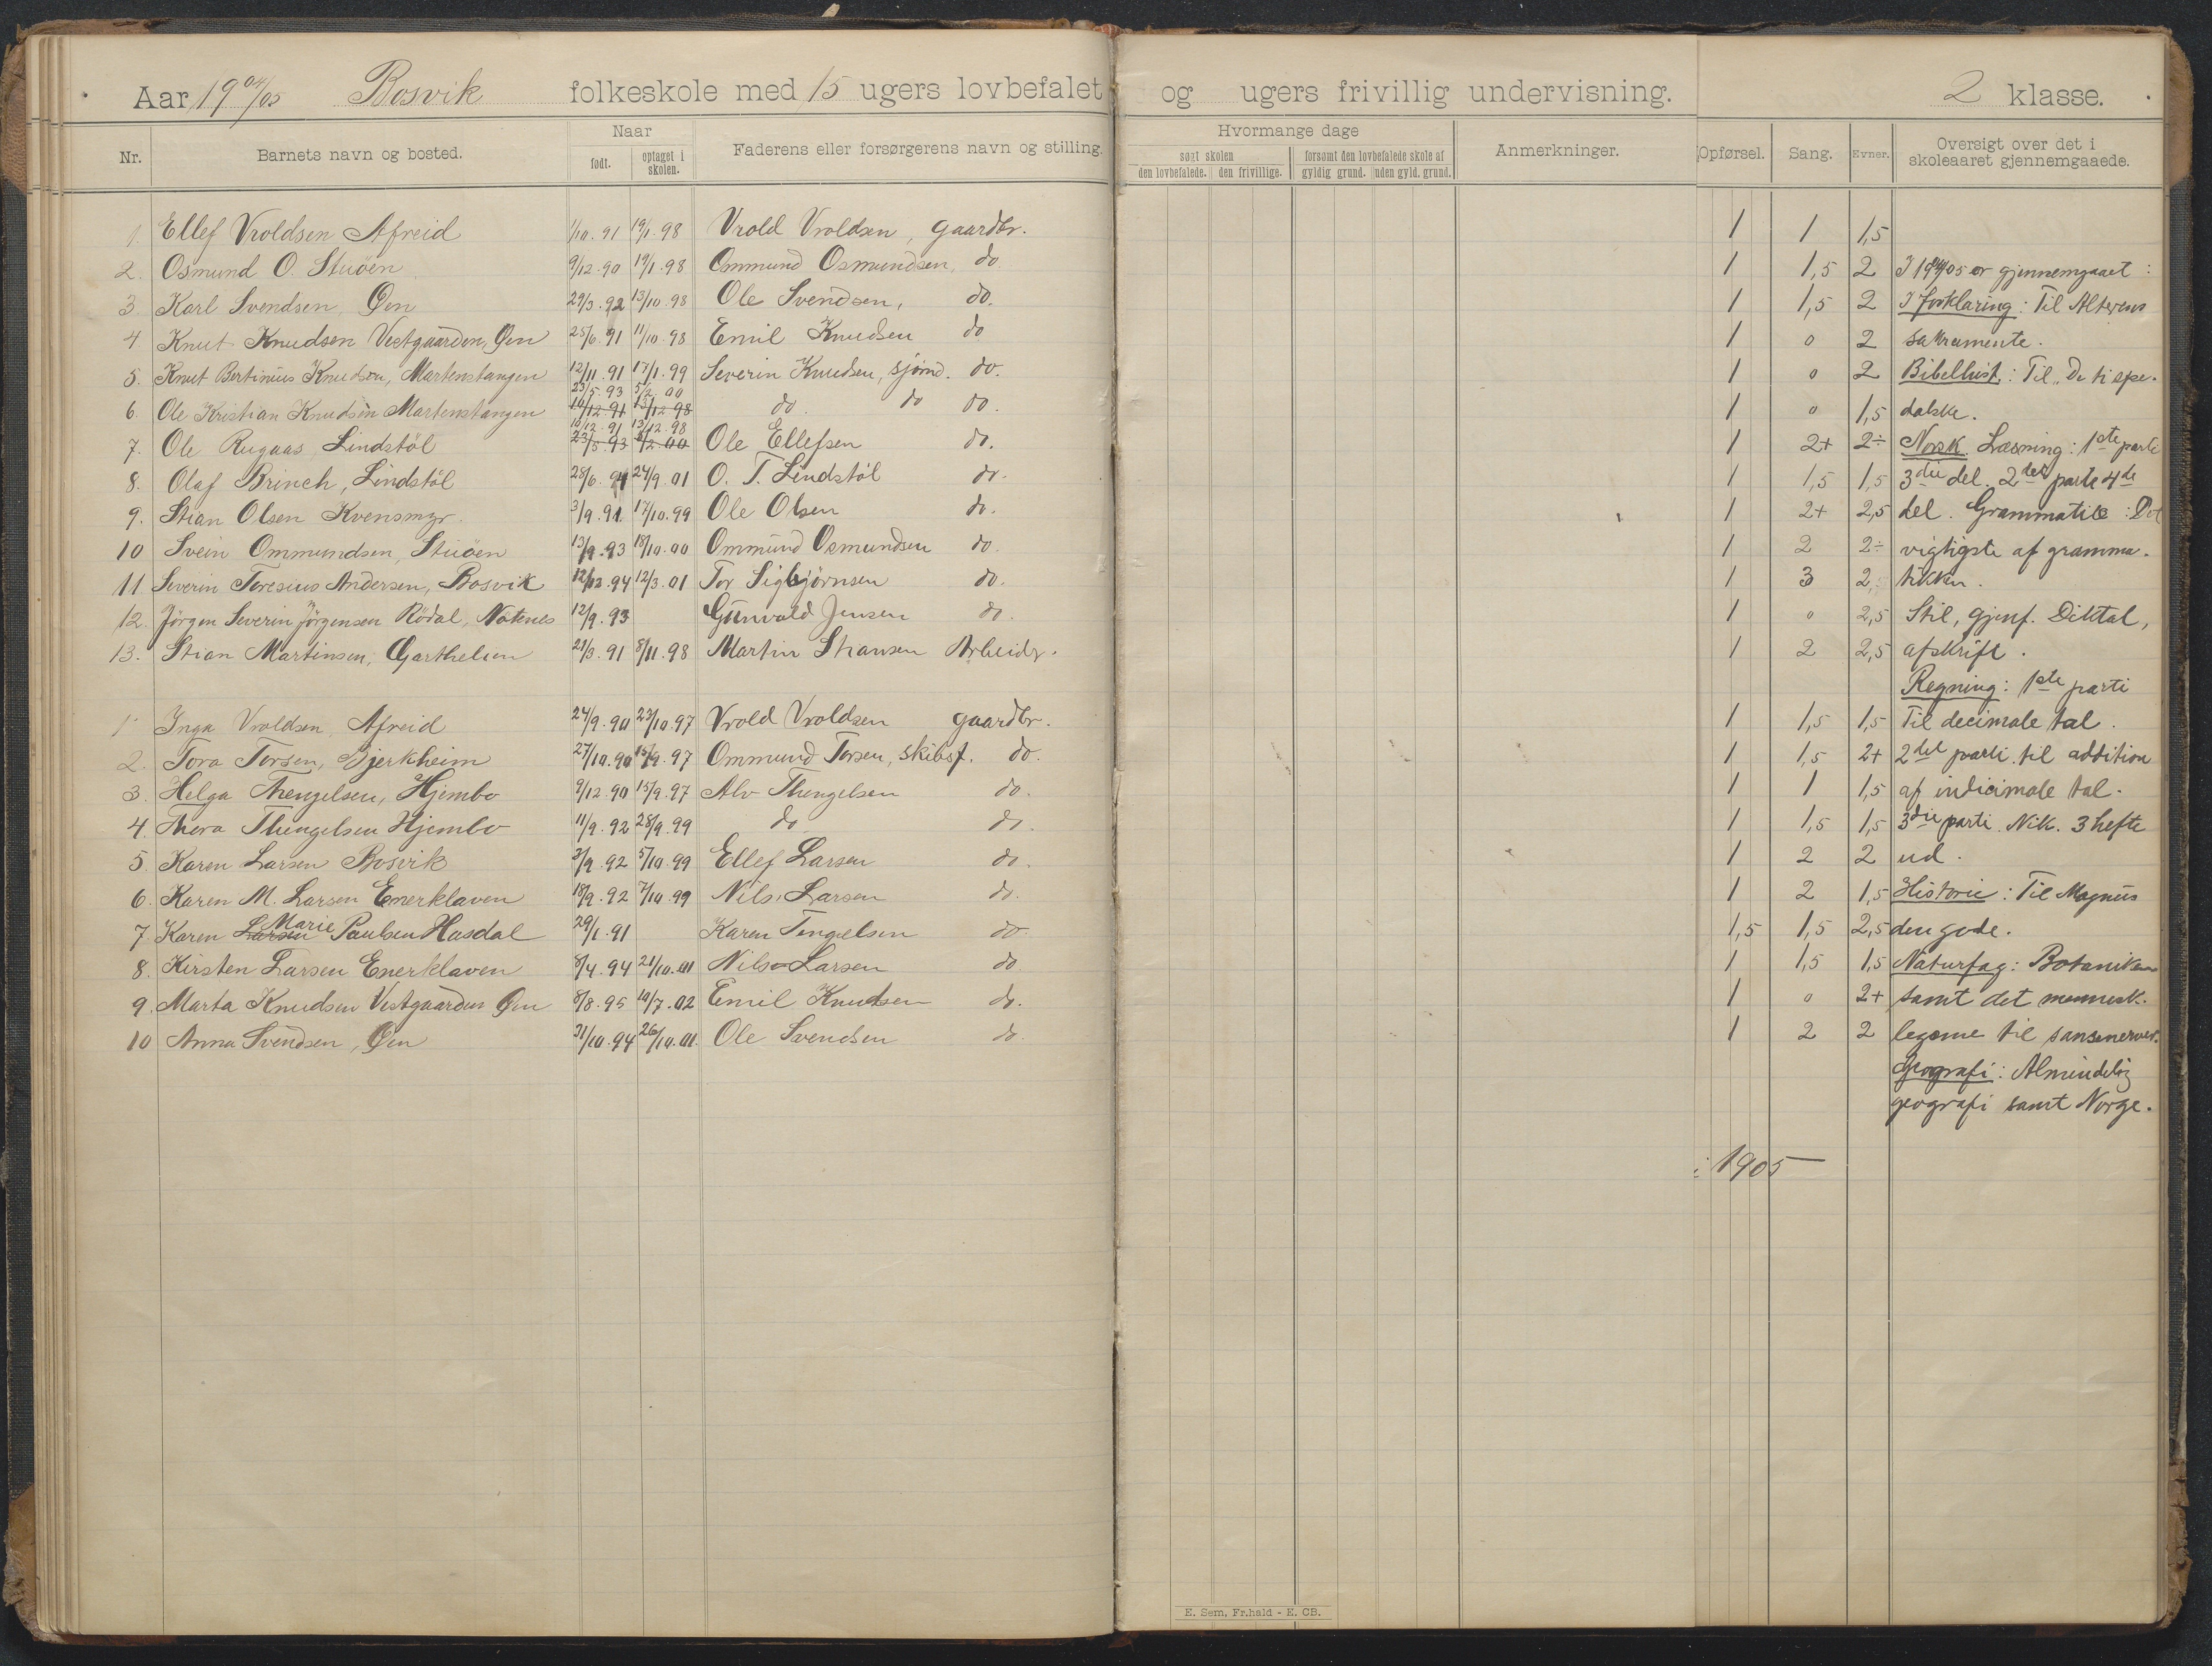 Aar 1904/05 Bosvik folkeskole med 15 ugers lovbefalet og ugers frivillig undervisning. 2 klasse.
Nr. Barnets navn og bosted. Naar født. optaget i skolen. Faderens eller forsørgerens navn og stilling. Hvormange dage søgt skolen den lovbefalede. den frivillige. forsømt den lovbefalede skole af gyldig grund. uden gyld. grund. Anmerkninger. Opførsel. Sang. Evner. Oversigt over det i skoleaaret gjennemgaaede.
1. Ellef Vroldsen Afreid 1/10.91 19/1.98 Vrold Vroldsen, gaardbr. 1 1 1,5
2. Osmund O. Stuöen 9/12.90 19/1.98 Ommund Osmundsen, do 1 1,5 2 I 1904/05 er gjennemgaaet :
3. Karl Svendsen, Øen 29/3.92 13/10.98 Ole Svendsen, do. 1 1,5 2 I Forklaring: Til Alterens
4 Knut Knudsen Vestgaarden, Øen 25/6.91 11/10.98 Emil Knudsen do 1 0 2 sakramente.
5. Knut Bertinius Knudsen, Martenstangen 12/11.91 17/1.99 Severin Knudsen, sjömd. do. 1 0 2 Bibelhist: Til „De ti spe-
6. Ole Kristian Knudsen Martenstangen 23/5.93 5/2 00 16/12.91 13/12.98 do. do do. 1 0 1,5 dalske.
7. Ole Rugaas, Lindstöl 16/12.91 13/12.98 23/5.93 5/2.00 Ole Ellefsen do. 1 2+ 2÷ Norsk. Læsning: 1ste parti
8. Olaf Brinch, Lindstöl 28/6.94 24/9.01 O. T. Lindstöl do. 1 1,5 1,5 3die del. 2det parti 4de
9. Stian Olsen Kvensmyr. 3/9.91. 17/10.99 Ole Olsen do. 1 2+ 2,5 del. Grammatik: Det
10 Svein Ommundsen, Stuöen 13/9.93 18/10.00 Ommund Osmundsen do. 1 2 2÷ vigtigste af gramma-
11. Severin Toresius Andersen, Bosvik 12/12.94 12/3.01 Tor Sigbjörnsen do. 1 3 2 tikken.
12. Jörgen Severin Jörgensen Rödal, Notenes 12/9.93 Gunvald Jensen do. 1 0 2,5 Stil, gjenf. Diktat,
13. Stian Martinsen, Garthelien 21/3.91 8/11.98 Martin Stiansen Arbeidr. 1 2 2,5 afskrift.
Regning: 1ste parti
1 Inga Vroldsen, Afreid 24/9.90 23/10.97 Vrold Vroldsen gaardbr. 1 1,5 1,5 Til decimale tal.
2. Tora Torsen, Bjerkheim 27/10.90 15/9.97 Ommund Torsen, skibsf. do. 1 1,5 2+ 2det parti til addition
3. Helga Thengelsen, Hjembo 9/12.90 15/9.97 Alv Thengelsen do. 1 1 1,5 af indicimale tal.
4. Thora Thengelsen Hjembo 11/9.92 28/9.99 do do. 1 1,5 1,5 3die parti. Nik. 3 hefte
5. Karen Larsen Bosvik 3/9.92 5/10.99 Ellef Larsen do. 1 2 2 ud.
6. Karen M. Larsen Enerklaven 18/9.92 7/10.99 Nils Larsen do. 1 2 1,5 Historie: Til Magnus
7. Karen Larsen Marie Paulsen Hasdal 29/1.91 Karen Tengelsen do. 1,5 1,5 2,5 den gode.
8. Kirsten Larsen Enerklaven 8/4.94 21/10.01 Nils Larsen do 1 1,5 1,5 Naturfag: Botaniken
9. Marta Knudsen Vestgaarden Øen 8/8.95 10/7.02 Emil Knudsen do. 1 0 2+ samt det mennesk.
10 Anna Svendsen, Øen 31/10.94 26/10.01. Ole Svendsen do 1 2 2 legeme til sansenerver.
Geografi: Almindelig
geografi samt Norge.
1905
E. Sem, Fr.hald - E. CB.